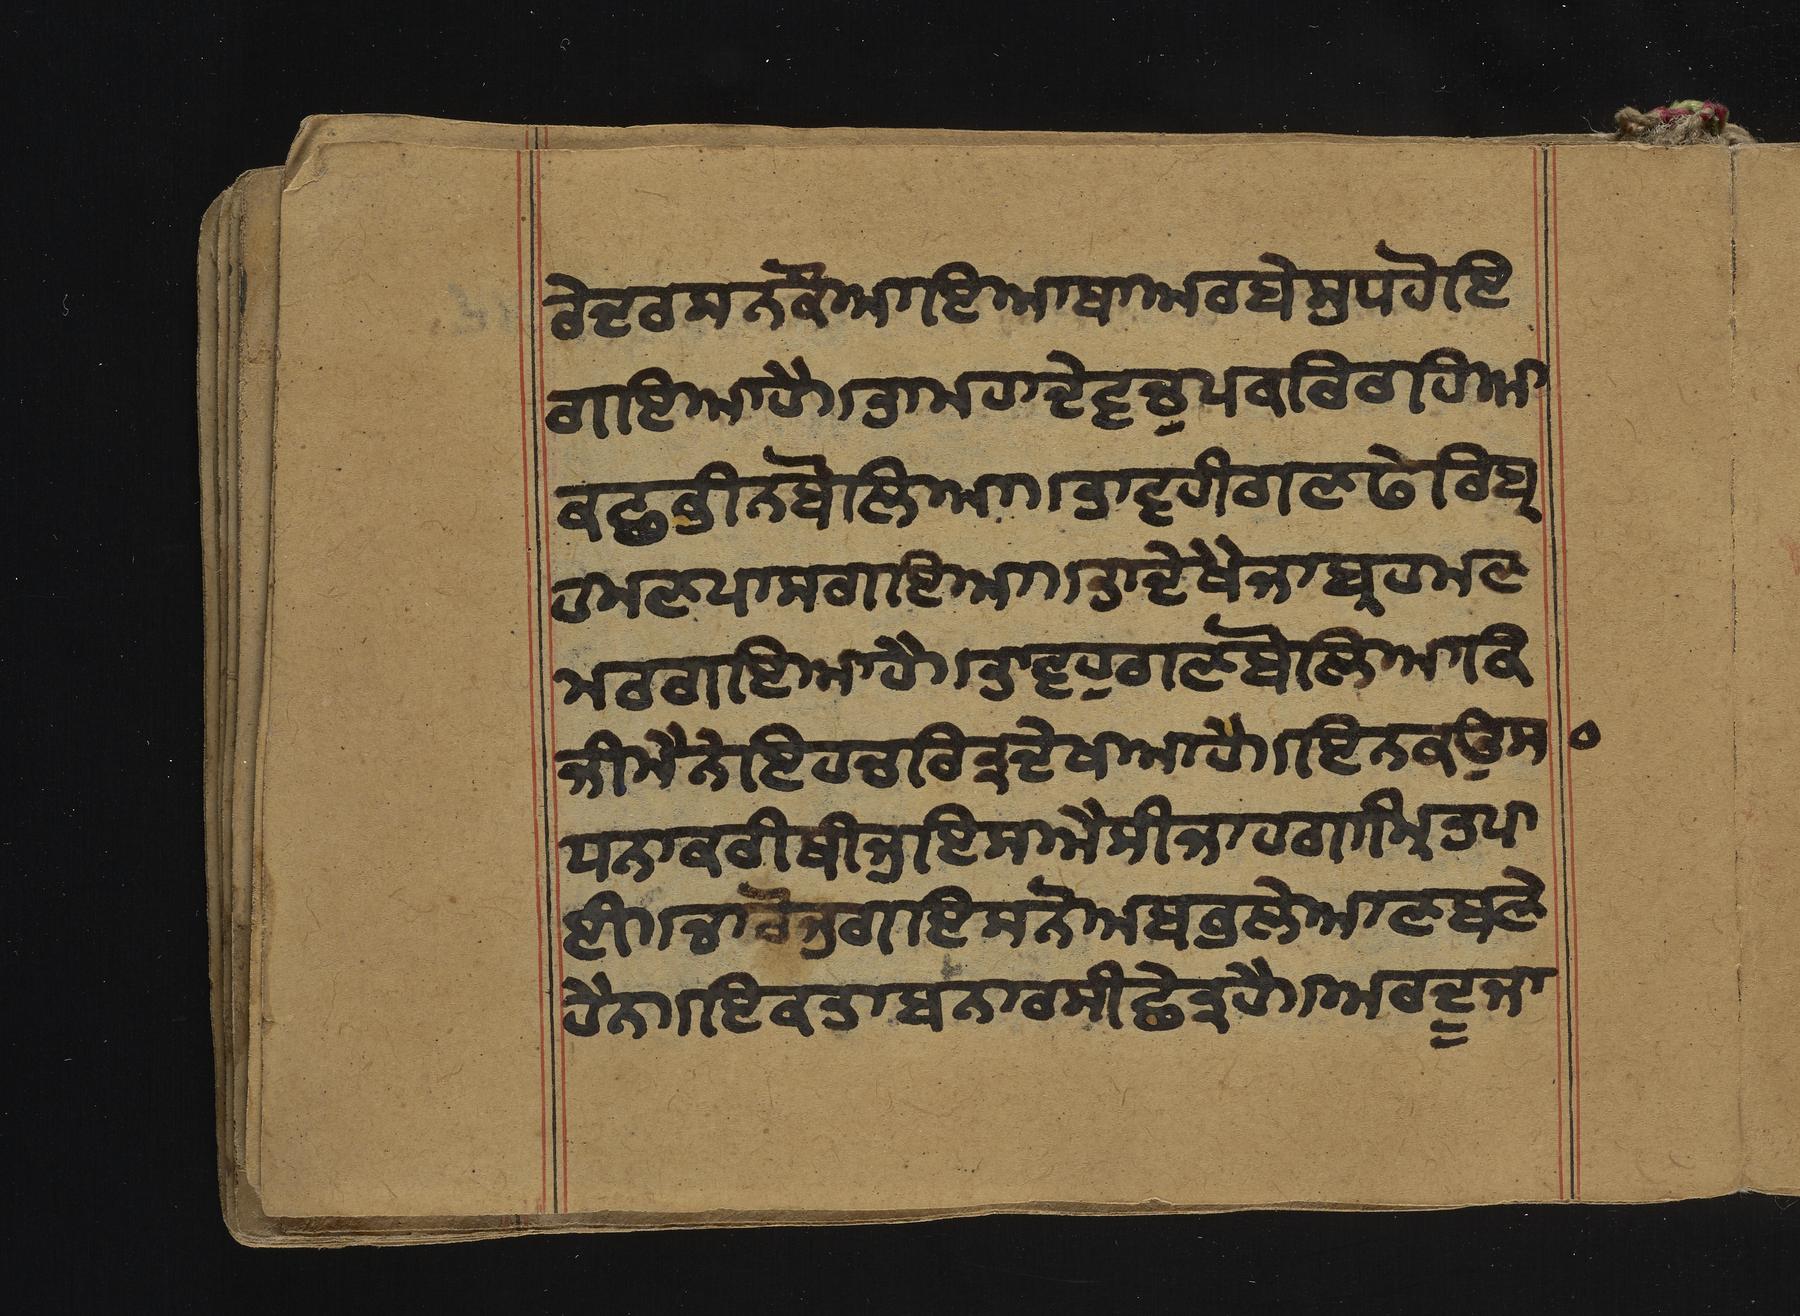 ਰੇਦਰਸਨਕੌਆਇਆਥਾਅਰਬੇਸੁਧਹੋਇ
ਗਇਆਹੈ।ਤਾਮਹਾਦੇਵਚੁਪਕਰਿਰਹਿਆ
ਕਛੁਭੀਨਬੋਲਿਆ।ਤਾਵਹੀਗਣਫੇਰਿਬ੍
ਹਮਣਪਾਸਗਇਆ।ਤਾਦੇਖੈਜਾਬ੍ਰਹਮਣ
ਮਰਗਇਆਹੈ।ਤਾਵਹੁਗਣਬੋਲਿਆਕਿ
ਜੀਮੈਨੇਇਹਚਰਿਤ੍ਰਦੇਖਾਆਹੈ।ਇਨਕਉਸ
ਧਨਾਕਰੀਥੀਜੁਇਸਾਐਸੀਜਾਹਗਾਮ੍ਰਿਤਪਾ
ਈ।ਚਾਰੋਜੁਗਇਸਨੋਅਬਭੁਲੇਆਣਬਣੇ
ਹੈਨ।ਇਕਤਾਬਨਾਰਸੀਛੇਤ੍ਰਹੈ।ਅਰਦੂਜਾ